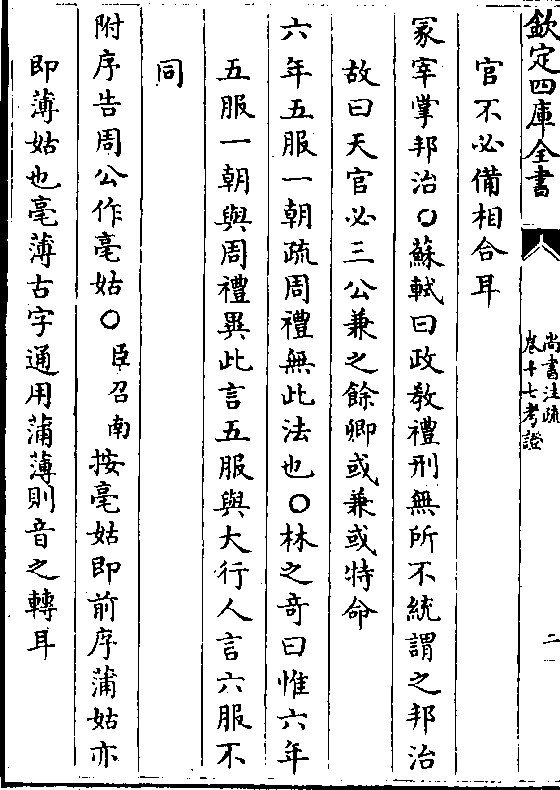 欽定四庫全書
尚書注疏
卷十七考證
二
官不必備相合耳
冡宰掌邦治○蘇軾曰政教禮刑無所不統謂之邦治
故曰天官必三公兼之餘卿或兼或特命
六年五服一朝疏周禮無此法也○林之奇曰惟六年
五服一朝與周禮異此言五服與大行人言六服不
同
附序告周公作亳姑○臣召南按亳姑即前序蒲姑亦
即薄姑也亳薄古字通用蒲薄則音之轉耳